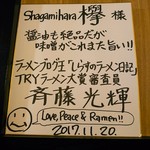 Shagamihara 欅 様
醤油も絶品だが
味噌がこれまた旨い!!
ラーメンブロガー「しらすのラーメン日記」
TRYラーメン大賞審査員
斉藤光輝
Love, Peace & Ramen!!
2017.11.20.